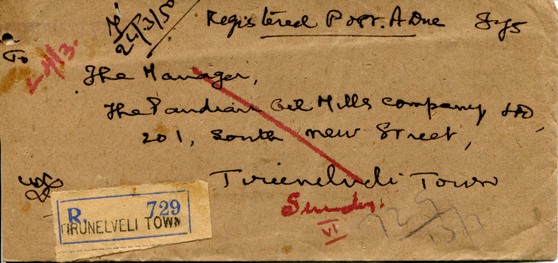 24/3/50
Registered Post. A Due
To
24/3.
The Manager,
The Pandian Oil Mills Company, Ltd,
201, South New Street,
Tirunelveli Town
Sundry.
VI
R. 729
TIRUNELVELI TOWN
729